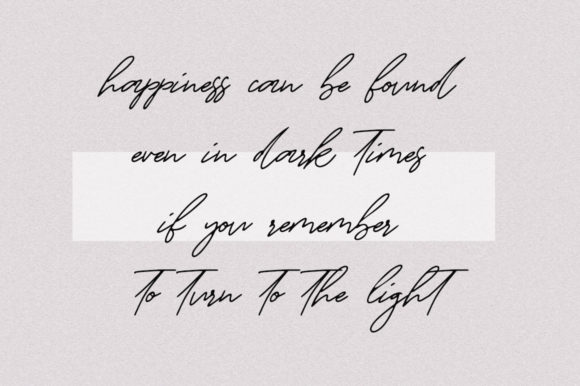 happiness can be found
even in dark times
if you remember
to turn to the light